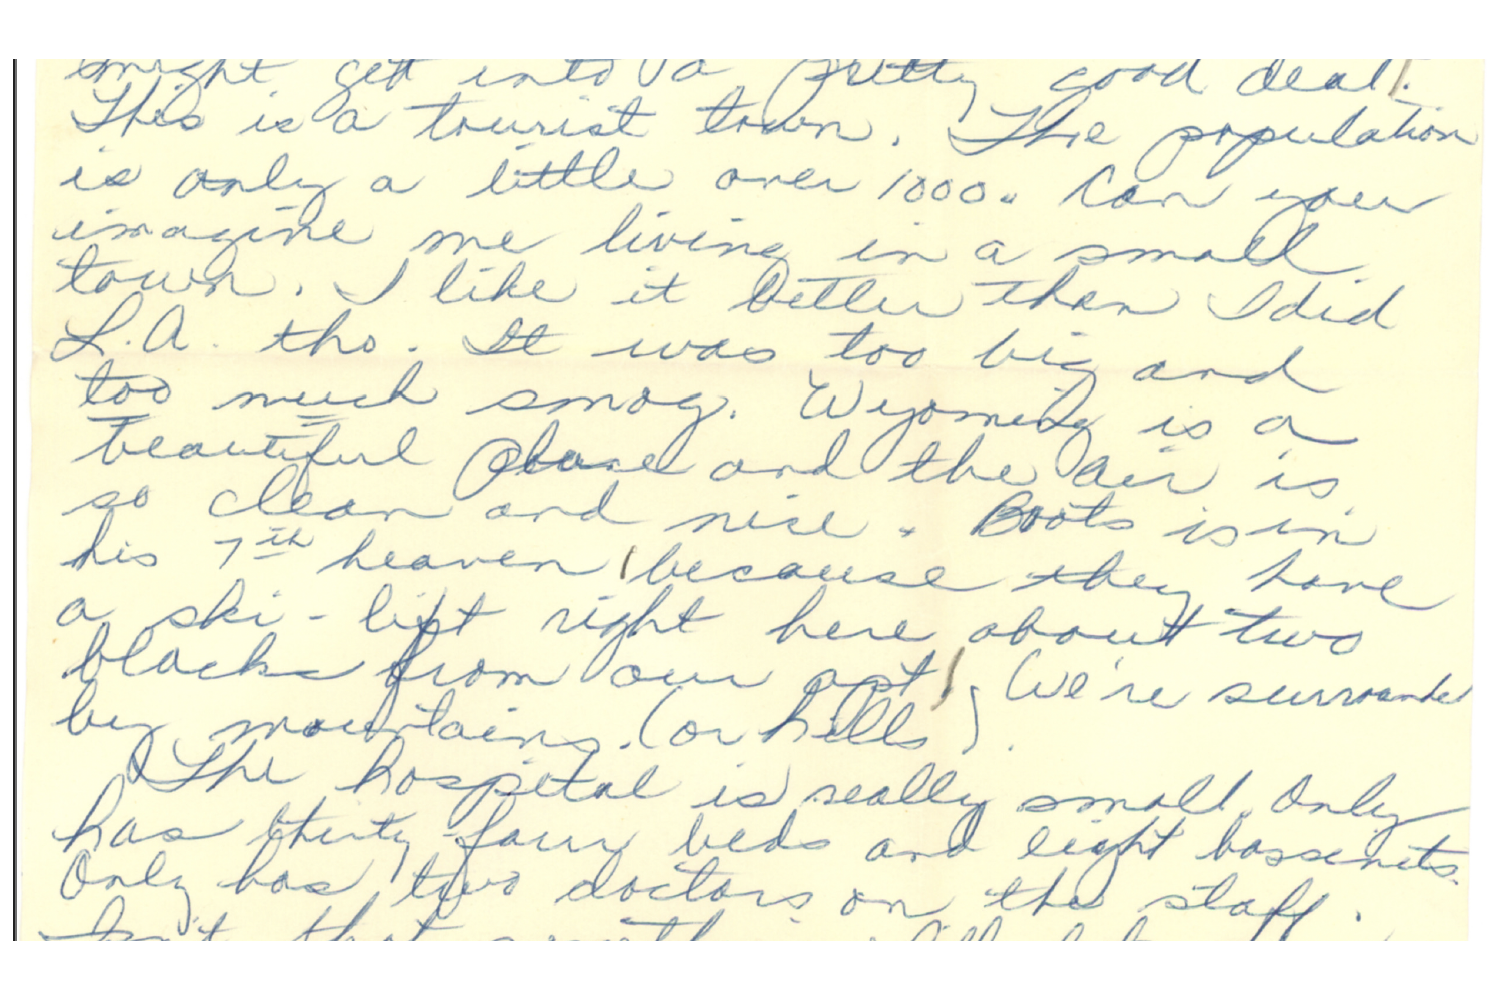 might get into a pretty good deal.
This is a tourist town. The population
is only a little over 1000. Can you
imagine me living in a small
town. I like it better than I did
L.A. tho. It was too big and
too much smog. Wyoming is a
beautiful place and the air is
so clean and nice. Boots is in
his 7th heaven because they have
a ski-lift right here about two
blocks from our apt. We're surrounded
by mountains. (or hills).
The hospital is really small. Only
has thirty-four beds and eight bassinets.
Only has two doctors on the staff.
Isn't that